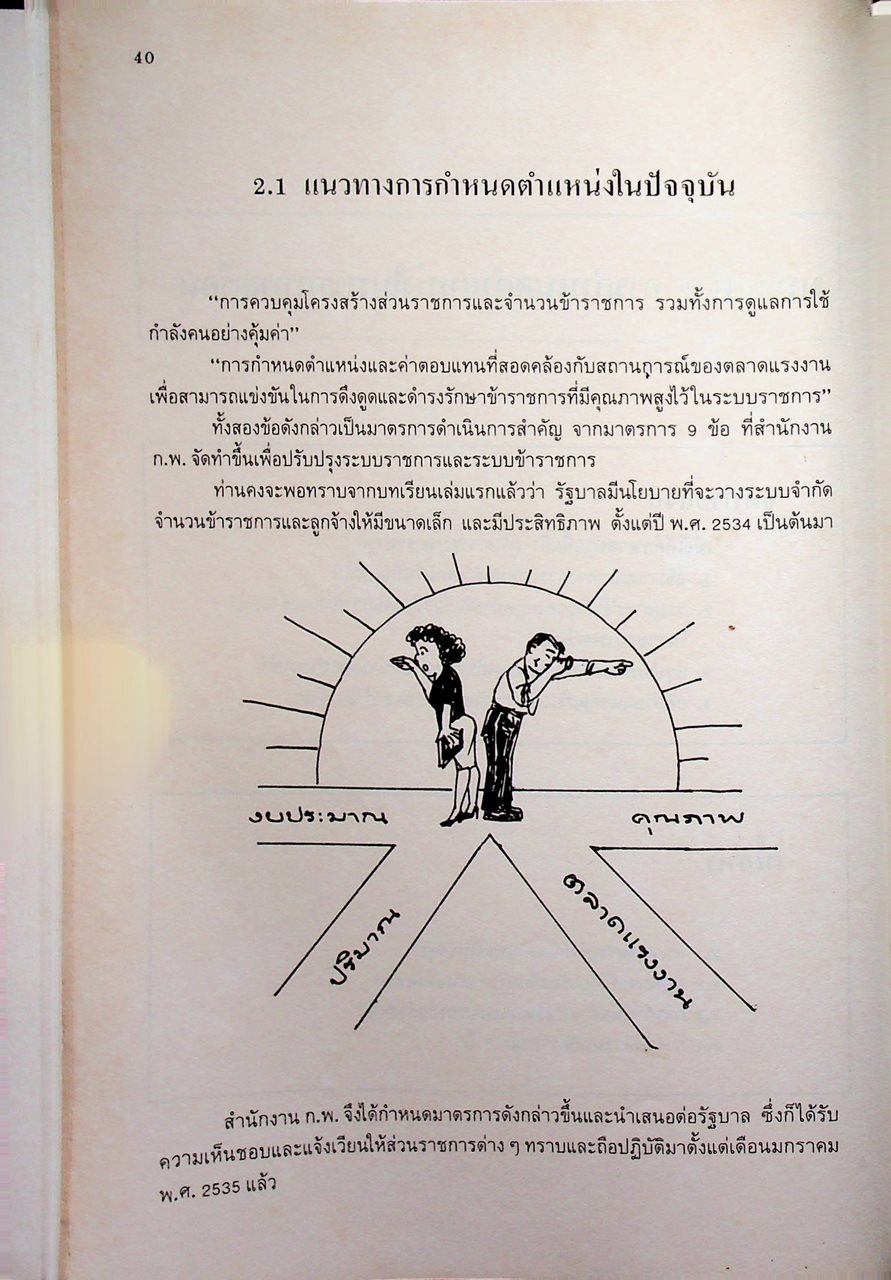 40
2.1 แนวทางการกำหนดตำแหน่งในปัจจุบัน
“การควบคุมโครงสร้างส่วนราชการและจำนวนข้าราชการ รวมทั้งการดูแลการใช้
กำลังคนอย่างคุ้มค่า”
“การกำหนดตำแหน่งและค่าตอบแทนที่สอดคล้องกับสถานการณ์ของตลาดแรงงาน
เพื่อสามารถแข่งขันในการดึงดูดและดำรงรักษาข้าราชการที่มีคุณภาพสูงไว้ในระบบราชการ”
ทั้งสองข้อดังกล่าวเป็นมาตรการดำเนินการสำคัญ จากมาตรการ 9 ข้อ ที่สำนักงาน
ก.พ. จัดทำขึ้นเพื่อปรับปรุงระบบราชการและระบบข้าราชการ
ท่านคงจะพอทราบจากบทเรียนเล่มแรกแล้วว่า รัฐบาลมีนโยบายที่จะวางระบบจำกัด
จำนวนข้าราชการและลูกจ้างให้มีขนาดเล็ก และมีประสิทธิภาพ ตั้งแต่ปี พ.ศ. 2534 เป็นต้นมา
งบประมาณ
คุณภาพ
ปริมาณ
ตลาดแรงงาน
สำนักงาน ก.พ. จึงได้กำหนดมาตรการดังกล่าวขึ้นและนำเสนอต่อรัฐบาล ซึ่งก็ได้รับ
ความเห็นชอบและแจ้งเวียนให้ส่วนราชการต่าง ๆ ทราบและถือปฏิบัติมาตั้งแต่เดือนมกราคม
พ.ศ. 2535 แล้ว